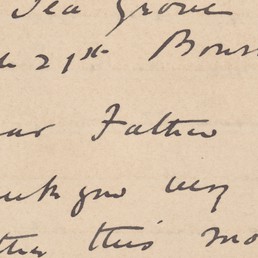 Tea Grove
21st Bour
ar Father
ank you very
ther this mo